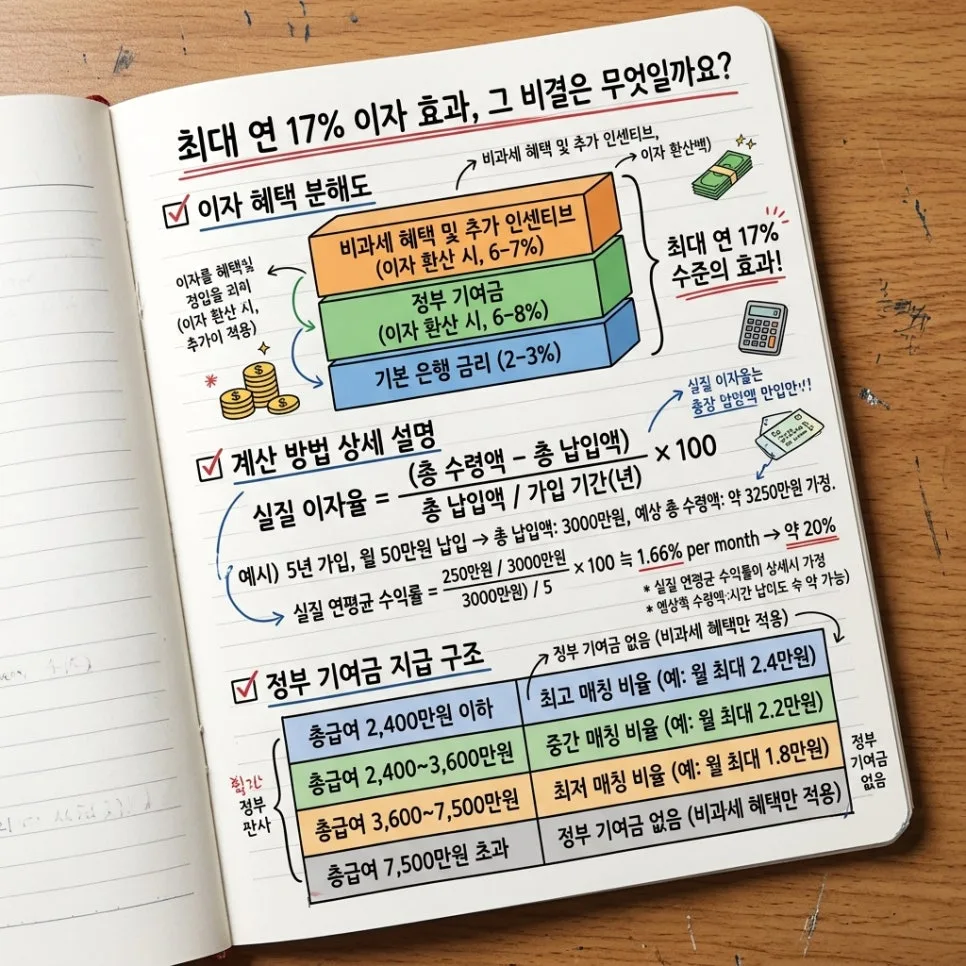 최대 연 17% 이자 효과, 그 비결은 무엇일까요?
비과세 혜택 및 추가 인센티브,
이자 환산백)
이자 혜택 분해도
비과세 혜택 및 추가 인센티브
(이자 환산 시, 6-7%)
정부 기여금
(이자 환산 시, 6-8%)
기본 은행 금리 (2-3%)
이자를 혜택및
정입을
(이자 환산 시,
추가이 적용)
최대 연 17%
수준의 효과!
실질 이자율는
계산 방법 상세 설명
실질 이자율 = (총 수령액 - 총 납입액)
총 납입액 / 가입 기간(년)
× 100
예시) 5년 가입, 월 50만원 납입 → 총 납입액: 3000만원, 예상 총 수령액: 약 3250만원 가정.
실질 연평균 수익률 = 250만원 / 3000만원
3000만원) / 5
× 100 ≒ 1.66% per month → 약 20%
* 실질 연평균 수익률이 상세시 가정
가능)
정부 기여금 지급 구조
정부 기여금 없음 (비과세 혜택만 적용)
총급여 2,400만원 이하
최고 매칭 비율 (예: 월 최대 2.4만원)
총급여 2,400~3,600만원
중간 매칭 비율 (예: 월 최대 2.2만원)
총급여 3,600~7,500만원
최저 매칭 비율 (예: 월 최대 1.8만원)
총급여 7,500만원 초과
정부 기여금 없음 (비과세 혜택만 적용)
정부
판사
정부
기여금
없음